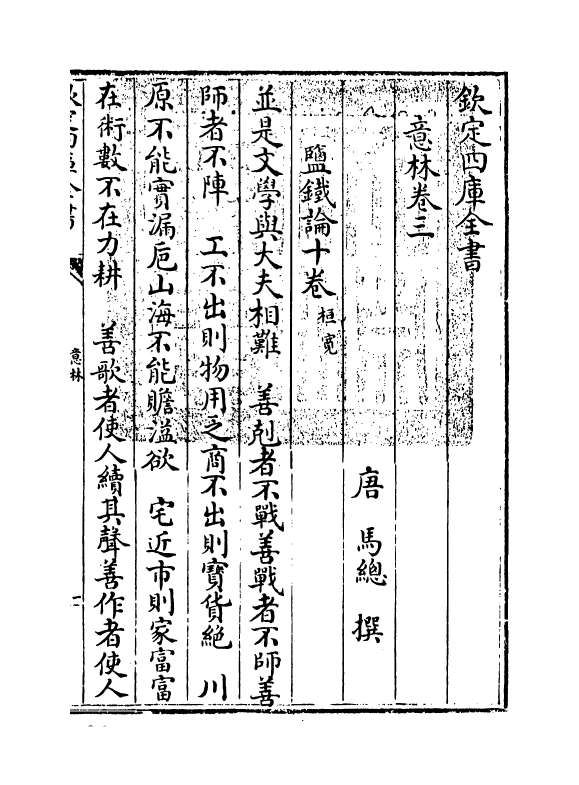 欽定四庫全書
意林卷三
唐 馬總 撰
鹽鐵論十卷 桓寛
並是文學與大夫相難 善剋者不戰善戰者不師善
師者不陣 工不出則物用乏商不出則寶貨絶 川
原不能實漏巵山海不能贍溢欲 宅近市則家富富
在術數不在力耕 善歌者使人續其聲善作者使人
意林